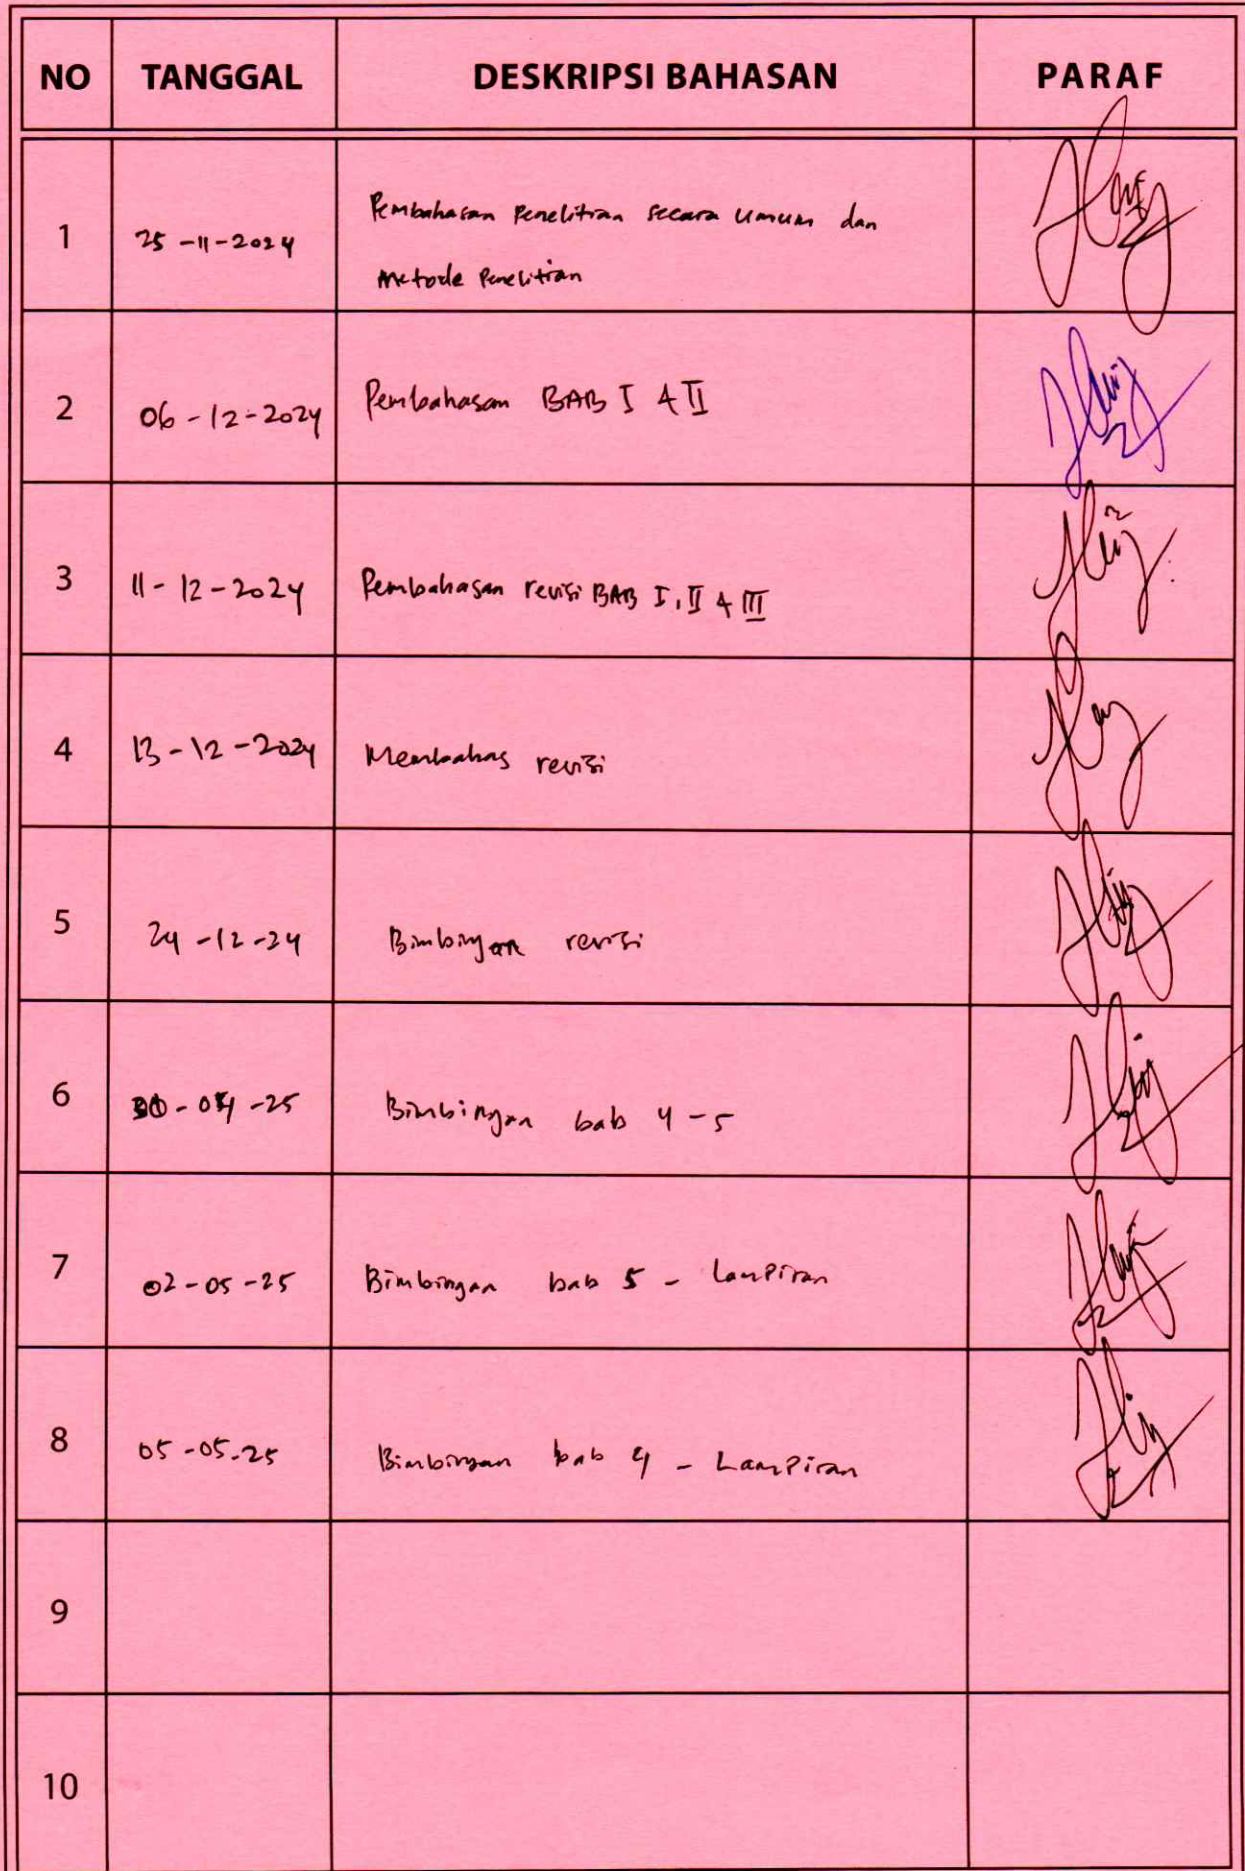 NO TANGGAL DESKRIPSI BAHASAN PARAF
1 25-11-2024 Pembahasan Penelitian secara umum dan
Metode Penelitian
2 06-12-2024 Pembahasan BAB I & II
3 11-12-2024 Pembahasan revisi BAB I, II & III
4 13-12-2024 Membahas revisi
5 24-12-24 Bimbingan revisi
6 30-04-25 Bimbingan bab 4-5
7 02-05-25 Bimbingan bab 5 - Lampiran
8 05-05-25 Bimbingan bab 4 - Lampiran
9
10